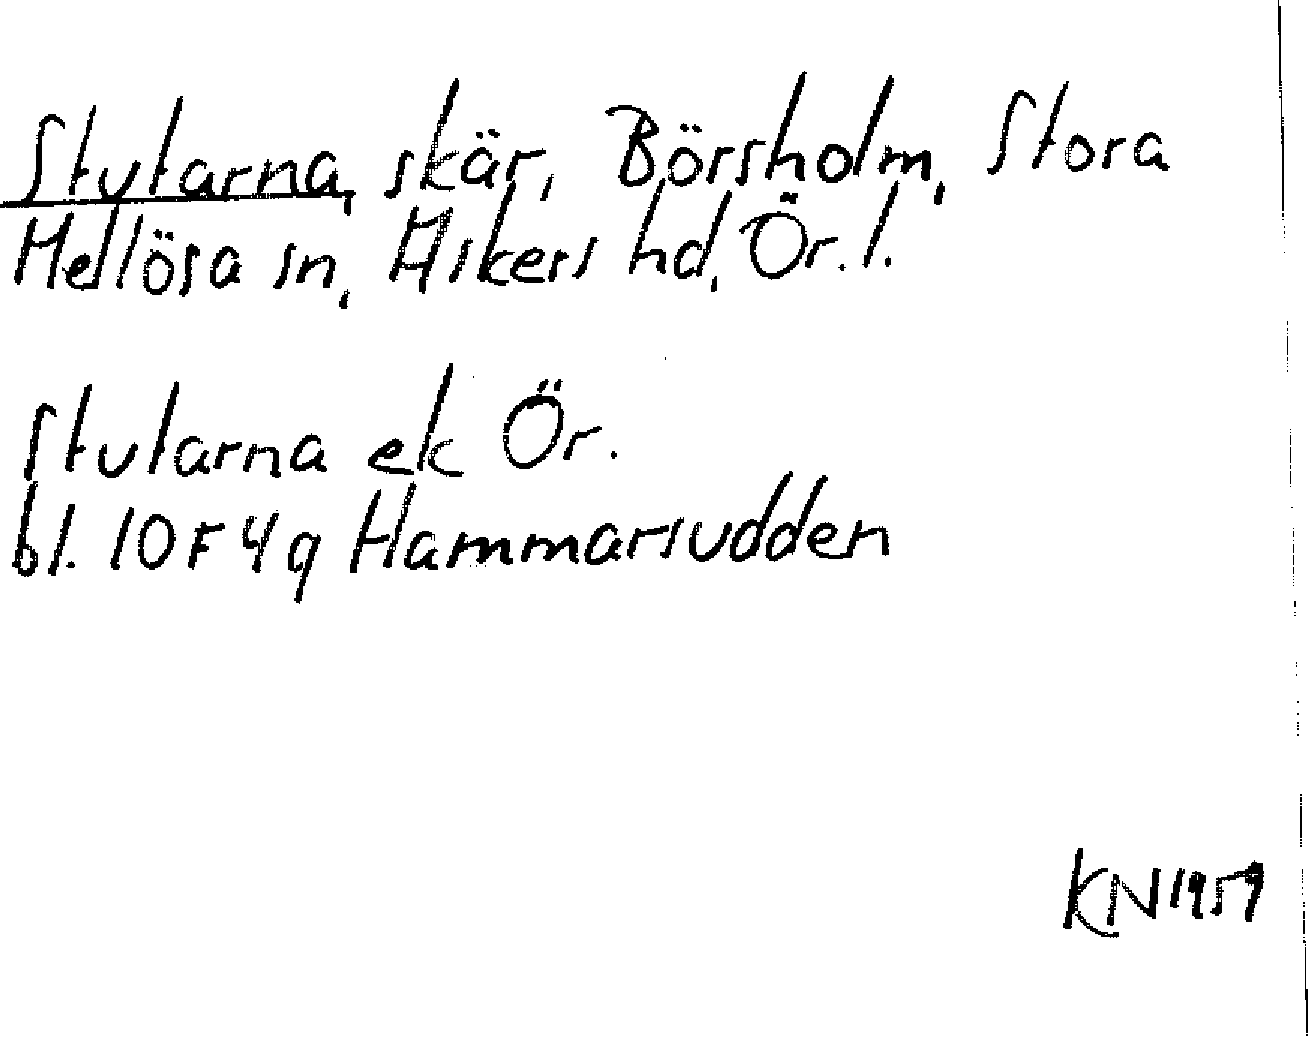 Stutarna, skär, Börsholm, Stora
Mellösa sn, Askers hd, Ör. l.
Stutarna ek Ör.
bl. 10F4g Hammarsudden
KN 1959